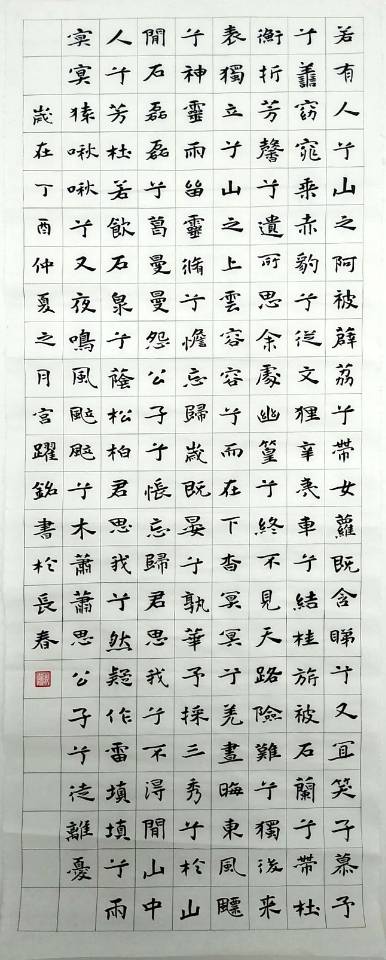 若有人兮山之阿被薜荔兮帶女蘿既含睇兮又宜笑子慕予
兮譱窈窕乘赤豹兮從文狸辛夷車兮結桂旂被石蘭兮帶杜
衡折芳馨兮遺所思余處幽篁兮終不見天路險難兮獨後來
表獨立兮山之上雲容容兮而在下杳冥冥兮羌晝晦東風飄
兮神靈雨留靈脩兮憺忘歸歲既晏兮孰華予採三秀兮於山
閒石磊磊兮葛曼曼怨公子兮悵忘歸君思我兮不得閒山中
人兮芳杜若飲石泉兮蔭松柏君思我兮然疑作雷填填兮雨
冥冥猿啾啾兮又夜鳴風颯颯兮木蕭蕭思公子兮徒離憂
歲在丁酉仲夏之月宮躍銘書於長春